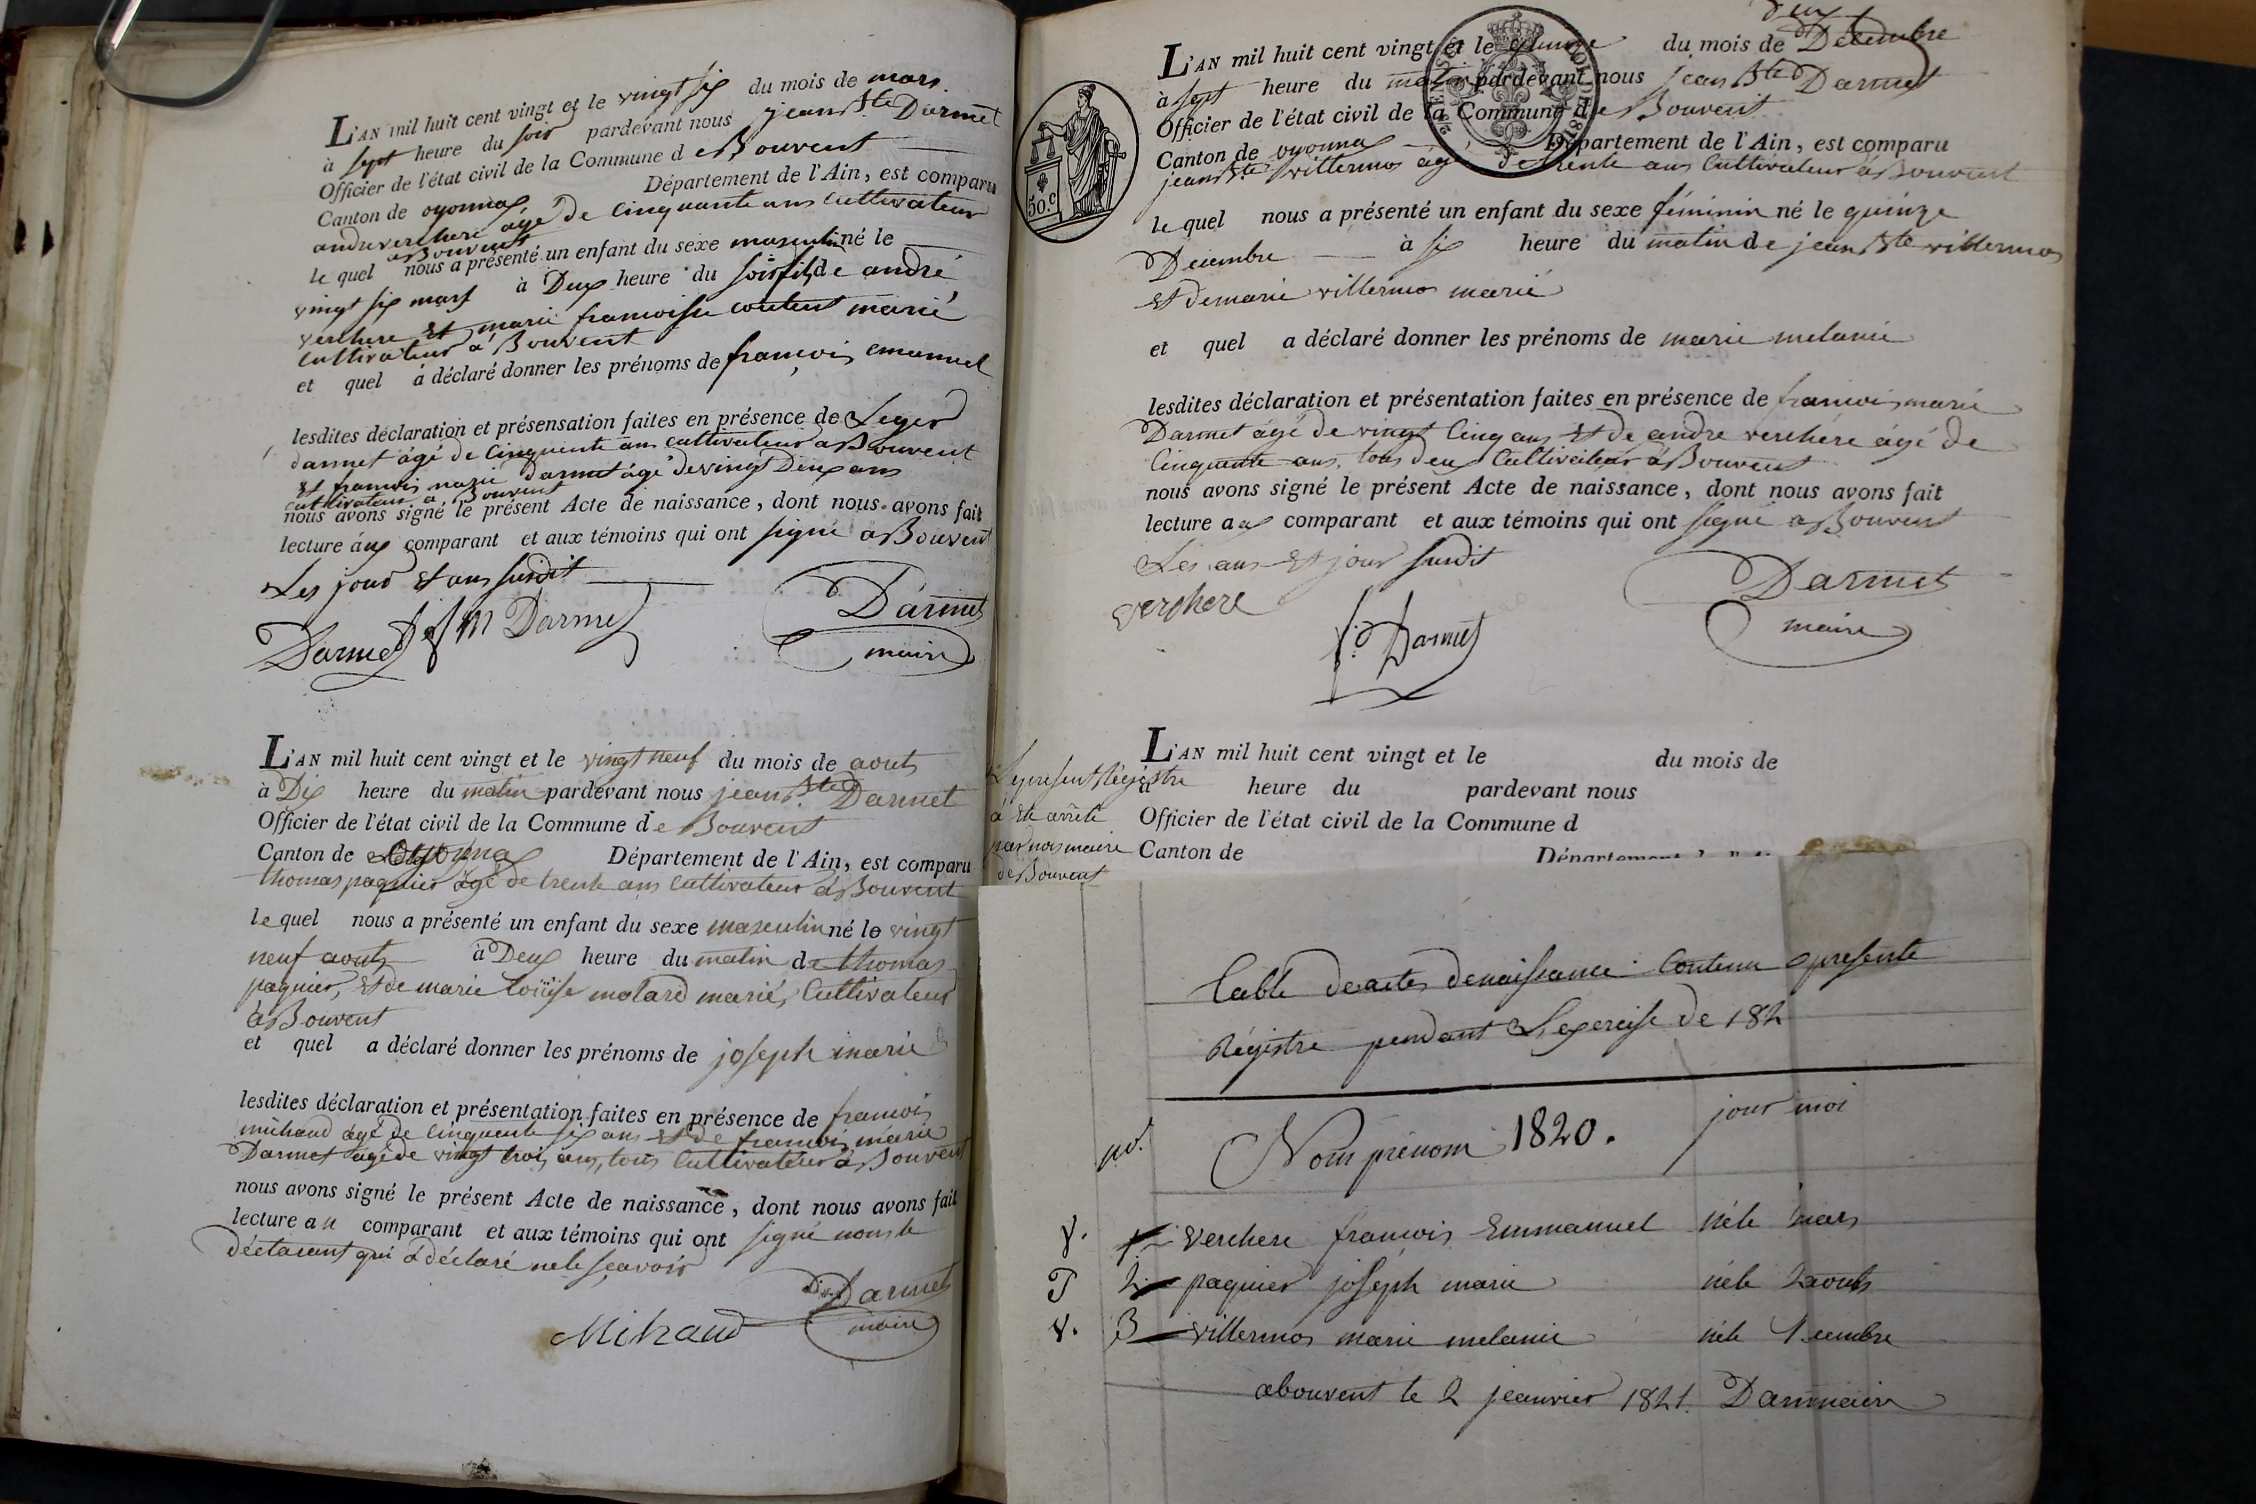 L'AN mil huit cent vingt et le vingt six du mois de mars
à sept heure du soir pardevant nous jean Bte Darmet
Officier de l'état civil de la Commune de Bouvent
Canton de oyonnax Département de l'Ain, est comparu
andré verchere âgé de cinquante ans cultivateur
a Bouvent
le quel nous a présenté un enfant du sexe masculin né le
vingt six mars à Deux heure du soir fils de andré
verchere et marie francoise content marié
cultivateur a Bouvent
et quel a déclaré donner les prénoms de francois emanuel
lesdites déclaration et présensation faites en présence de Leger
darmet âgé de cinquente ans cultivateur a Bouvent
et francois marie darmet âgé de vingt Deux ans
cultivateur a Bouvent
nous avons signé le présent Acte de naissance, dont nous avons fait
lecture aux comparant et aux témoins qui ont signé a Bouvent
Les jour et ans susdit
Darmet f m Darmet Darmet
maire
L'AN mil huit cent vingt et le vingt neuf du mois de aout
à Dix heure du matin pardevant nous jean Bte Darmet
Officier de l'état civil de la Commune de Bouvent
Canton de oyonnax Département de l'Ain, est comparu
thomas paquier âgé de trente ans cultivateur à Bouvent
le quel nous a présenté un enfant du sexe masculin né le vingt
neuf aout à Deux heure du matin de thomas
paquier, et de marie Louise molard marié, Cultivateur
à Bouvent
et quel a déclaré donner les prénoms de joseph marie
lesdites déclaration et présentation faites en présence de francois
michaud âgé de cinquente six ans et de francois marie
Darmet âgé de vingt trois ans, tous Cultivateur à Bouvent
nous avons signé le présent Acte de naissance, dont nous avons fait
lecture au comparant et aux témoins qui ont signé nom le
déclarant qui à déclaré ne le sçavoir
Darmet
Mihaud maire
deux
L'AN mil huit cent vingt et le quinze du mois de Décembre
à sept heure du matin pardevant nous jean Bte Darmet
Officier de l'état civil de la Commune de Bouvent
Canton de oyonnax Département de l'Ain, est comparu
jean Bte villermos âgé de trente ans Cultivateur à Bouvent
50.c
le quel nous a présenté un enfant du sexe féminin né le quinze
Decembre à six heure du matin de jean Bte villermos
et de marie villermos marié
et quel a déclaré donner les prénoms de marie melanie
lesdites déclaration et présentation faites en présence de francois marie
Darmet âgé de vingt Cinq ans et de andre verchére âgé de
Cinquente ans, tous deux Cultivateur à Bouvent
nous avons signé le présent Acte de naissance, dont nous avons fait
lecture aux comparant et aux témoins qui ont signé a Bouvent
Les ans et jour susdit
verchere f. Darmet Darmet
maire
L'AN mil huit cent vingt et le du mois de
à heure du pardevant nous
Officier de l'état civil de la Commune d
Canton de
Le present Régistre
à Eté arrêté
par nous maire
de Bouvent
table de actes de naissance Contenu presente
Régistre pendant Lexercise de 182
no. Nom prénom 1820. jour moi
V. 1 verchere francois Emmanuel né le mars
P 2 paquier joseph marie né le 2 aout
V. 3 villermos marie melanie né le 1 cembre
abouvent le 2 jeanvier 1821. Darm maire